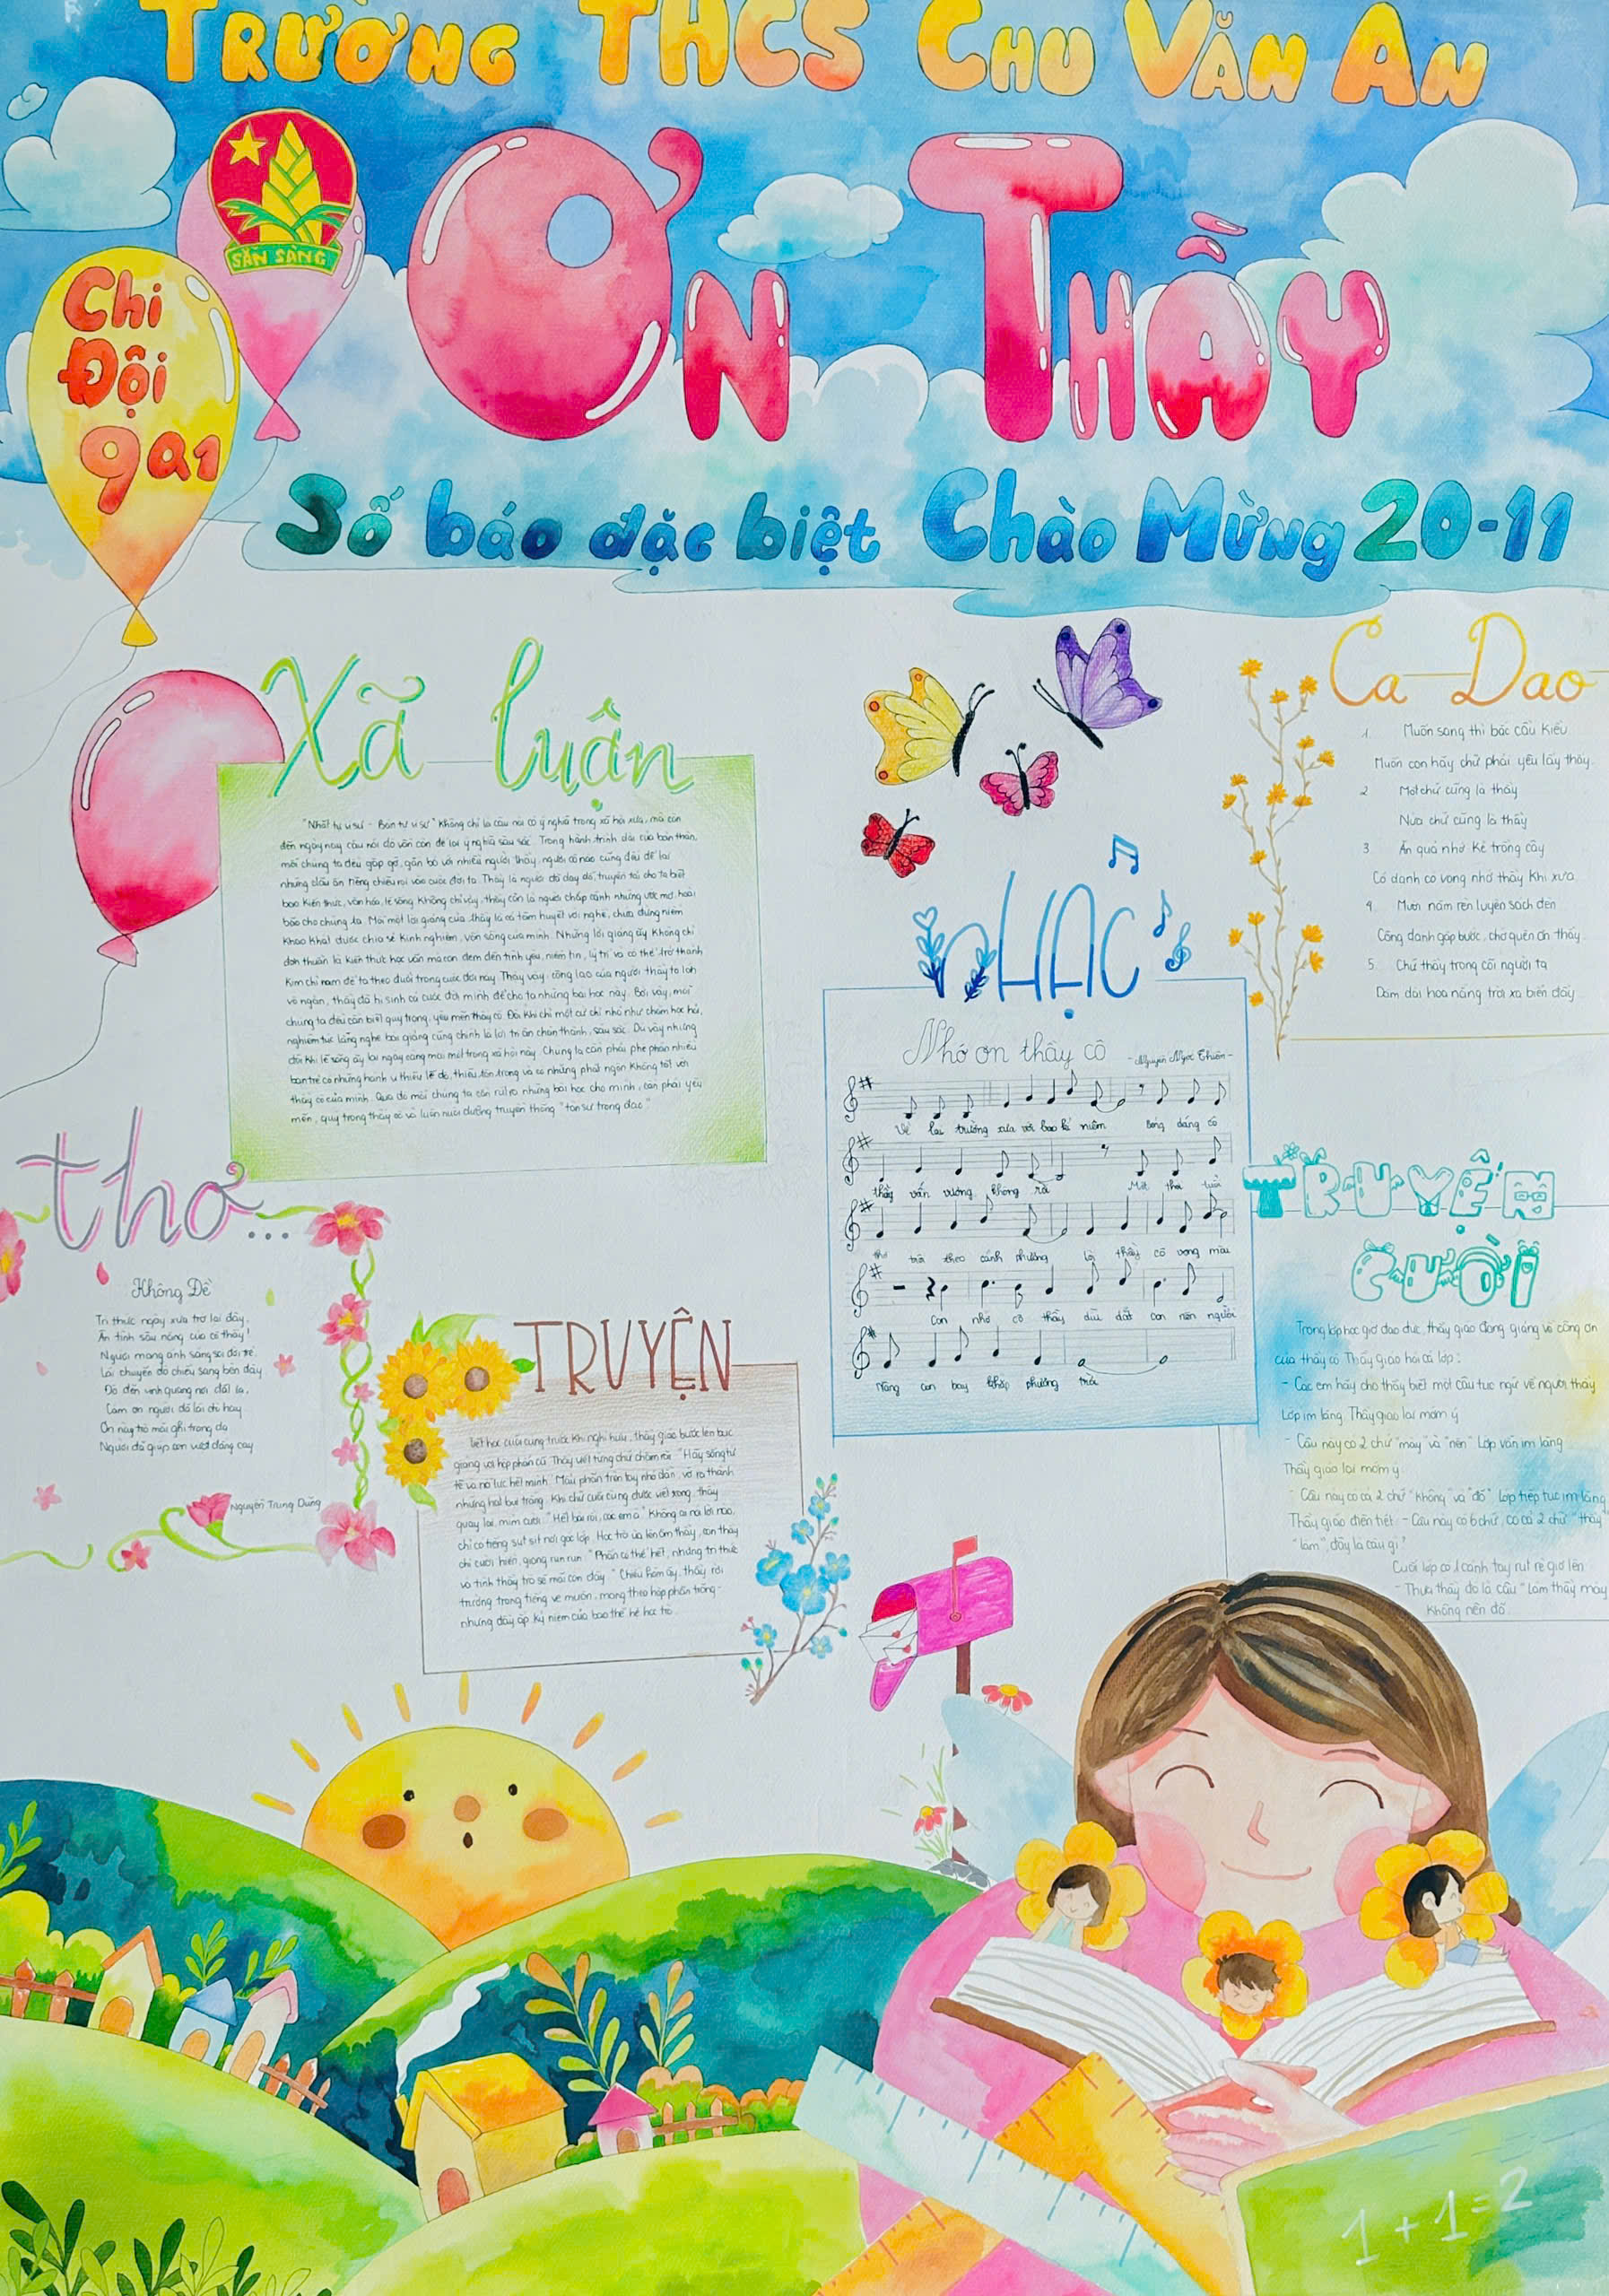 TRƯỜNG THCS CHU VĂN AN
SẴN SÀNG
Chi
Đội
9a1
ƠN THẦY
Số báo đặc biệt Chào Mừng 20-11
Xã luận
"Nhất tự vi sư - Bán tự vi sư" không chỉ là câu nói có ý nghĩa trong xã hội xưa, mà còn
đến ngày nay câu nói đó vẫn còn để lại ý nghĩa sâu sắc. Trong hành trình dài của bản thân,
mỗi chúng ta đều gặp gỡ, gắn bó với nhiều người thầy, người cô nào cũng đều để lại
những dấu ấn riêng chiếu rọi vào cuộc đời ta. Thầy là người đã dạy dỗ, truyền tải cho ta biết
bao kiến thức, văn hóa, lẽ sống. Không chỉ vậy, thầy còn là người chắp cánh những ước mơ, hoài
bão cho chúng ta. Mỗi một lời giảng của thầy là cả tâm huyết với nghề, chứa đựng niềm
khao khát được chia sẻ kinh nghiệm, vốn sống của mình. Những lời giảng ấy không chỉ
đơn thuần là kiến thức học vấn mà còn đem đến tình yêu, niềm tin, lý trí và có thể trở thành
kim chỉ nam để ta theo đuổi trong cuộc đời này. Thầy vậy, công lao của người thầy to lớn
vô ngần, thầy đã hi sinh cả cuộc đời mình để cho ta những bài học này. Bởi vậy, mỗi
chúng ta đều cần biết quý trọng, yêu mến thầy cô. Đôi khi chỉ một cử chỉ nhỏ như chăm học hỏi,
nghiêm túc lắng nghe bài giảng cũng chính là lời tri ân chân thành, sâu sắc. Dù vậy nhưng
đôi khi lẽ sống ấy lại ngày càng mai một trong xã hội này. Chúng ta cần phải phê phán nhiều
bạn trẻ có những hành vi thiếu lễ độ, thiếu tôn trọng và có những phát ngôn không tốt với
thầy cô của mình. Qua đó mỗi chúng ta cần rút ra những bài học cho mình, cần phải yêu
mến, quý trọng thầy cô và luôn nuôi dưỡng truyền thống "tôn sư trọng đạo"
Ca Dao
1. Muốn sang thì bắc cầu kiều
Muốn con hay chữ phải yêu lấy thầy.
2. Một chữ cũng là thầy
Nửa chữ cũng là thầy
3. Ăn quả nhớ kẻ trồng cây
Có danh có vọng nhớ thầy khi xưa.
4. Mười năm rèn luyện sách đèn
Công danh gặp bước, chớ quên ơn thầy.
5. Chữ thầy trong cõi người ta
Dặm dài hoa nắng trời xa biển đầy
NHẠC
Nhớ ơn thầy cô
- Nguyễn Ngọc Thiện -
Về lại trường xưa với bao kỉ niệm Bóng dáng cô
thầy vấn vương không rời Một thời tuổi
thơ trôi theo cánh phượng Lời thầy cô vọng mãi
Con nhớ cô thầy dìu dắt con nên người
Nâng con bay khắp phương trời
thơ...
Không Đề
Tri thức ngày xưa trở lại đây,
Ân tình sâu nặng của cô thầy!
Người mang ánh sáng soi đời trẻ
Lái chuyến đò chiều sang bến đây
Đò đến vinh quang nơi đất lạ,
Cảm ơn người đã lái đò hay
Ơn này trò mãi ghi trong dạ
Người đã giúp con vượt đắng cay
Nguyễn Trung Dũng
TRUYỆN
Tiết học cuối cùng trước khi nghỉ hưu, thầy giáo bước lên bục
giảng với hộp phấn cũ. Thầy viết từng chữ chậm rãi: "Hãy sống tử
tế và nỗ lực hết mình. Mẩu phấn trên tay nhỏ dần, vỡ ra thành
những hạt bụi trắng. Khi chữ cuối cùng được viết xong, thầy
quay lại, mỉm cười: "Hết bài rồi, các em ạ" Không ai nói lời nào,
chỉ có tiếng sụt sịt nơi góc lớp. Học trò ùa lên ôm thầy, còn thầy
chỉ cười hiền, giọng run run: "Phấn có thể hết, nhưng tri thức
và tình thầy trò sẽ mãi còn đây." Chiều hôm ấy, thầy rời
trường trong tiếng ve muộn, mang theo hộp phấn trống -
nhưng đầy ắp kỷ niệm của bao thế hệ học trò.
TRUYỆN
CƯỜI
Trong lớp học giờ đạo đức, thầy giáo đang giảng về công ơn
của thầy cô. Thầy giáo hỏi cả lớp:
- Các em hãy cho thầy biết một câu tục ngữ về người thầy
Lớp im lặng. Thầy giáo lại mớm ý
- Câu này có 2 chữ "mày" và "nên" Lớp vẫn im lặng
Thầy giáo lại mớm ý
- Câu này có cả 2 chữ "không" và "đố" Lớp tiếp tục im lặng
Thầy giáo điên tiết: - Câu này có 6 chữ, có cả 2 chữ "thầy"
"làm", đây là câu gì?
Cuối lớp có 1 cánh tay rụt rè giơ lên
- Thưa thầy đó là câu "Làm thầy mày
không nên đố.
1 + 1 = 2